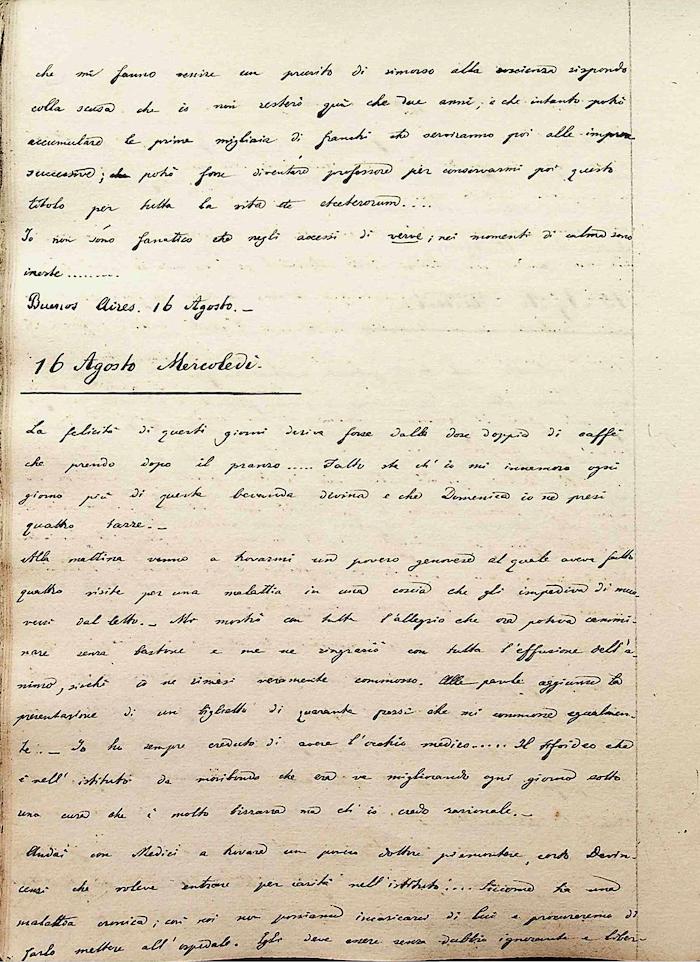 che mi fanno venire un prurito di rimorso alla coscienza rispondo
colla scusa che io non resterò quì che due anni; e che intanto potrò
accumulare le prime migliaia di franchi che serviranno poi alle imprese
successive; che potrò forse diventare professore per conservarmi poi questo
titolo per tutta la vita etc etceterorum....
Io non sono fanatico che negli accessi di verve; nei momenti di calma sono
inerte.........
Buenos Aires. 16 Agosto._
16 Agosto Mercoledì.
La felicità di questi giorni deriva forse dalla dose doppia di caffè
che prendo dopo il pranzo..... Fatto sta ch'io mi innamoro ogni
giorno più di questa bevanda divina e che Domenica io ne presi
quattro tazze._
Alla mattina venne a trovarmi un povero genovese al quale aveva fatto
quattro visite per una malattia in una coscia che gli impediva di muo-
versi dal letto._ Mi mostrò con tutta l'allegria che ora poteva cammi-
nare senza bastone e me ne ringraziò con tutta l'effusione dell'a-
nimo, sicchè io ne rimasi veramente commosso. Alle parole aggiunse la
presentazione di un biglietto di quaranta pezzi che mi commosse egualmen-
te._ Io ho sempre creduto di avere l'occhio medico..... Il tifoideo che
è nell'istituto da moribondo che era va migliorando ogni giorno sotto
una cura che è molto bizzarra ma ch'io credo razionale._
Andai con Medici a trovare un povero dottore piemontese, certo Devin-
cenzi che voleva entrare per carità nell'istituto.... Siccome ha una
malattia cronica; così noi non possiamo incaricarci di lui e procureremo di
farlo mettere all'ospedale. Egli deve essere senza dubbio ignorante e liber-